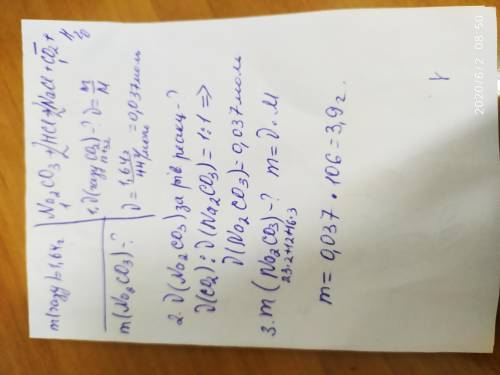 m(газу)=1,64г
m(Na2CO3)-?
Na2CO3+2HCl=2NaCl+CO2+H2O
1. ν(газу CO2)-? ν=m/M
ν=1,64г/44г/моль=0,037моль
2. ν(Na2CO3) за рів реакц-?
ν(CO2):ν(Na2CO3)=1:1 =>
ν(Na2CO3)=0,037моль
3. m(Na2CO3)-? m=ν·M
23·2+12+16·3
m=0,037·106=3,9г.
2020/6/2 08:50